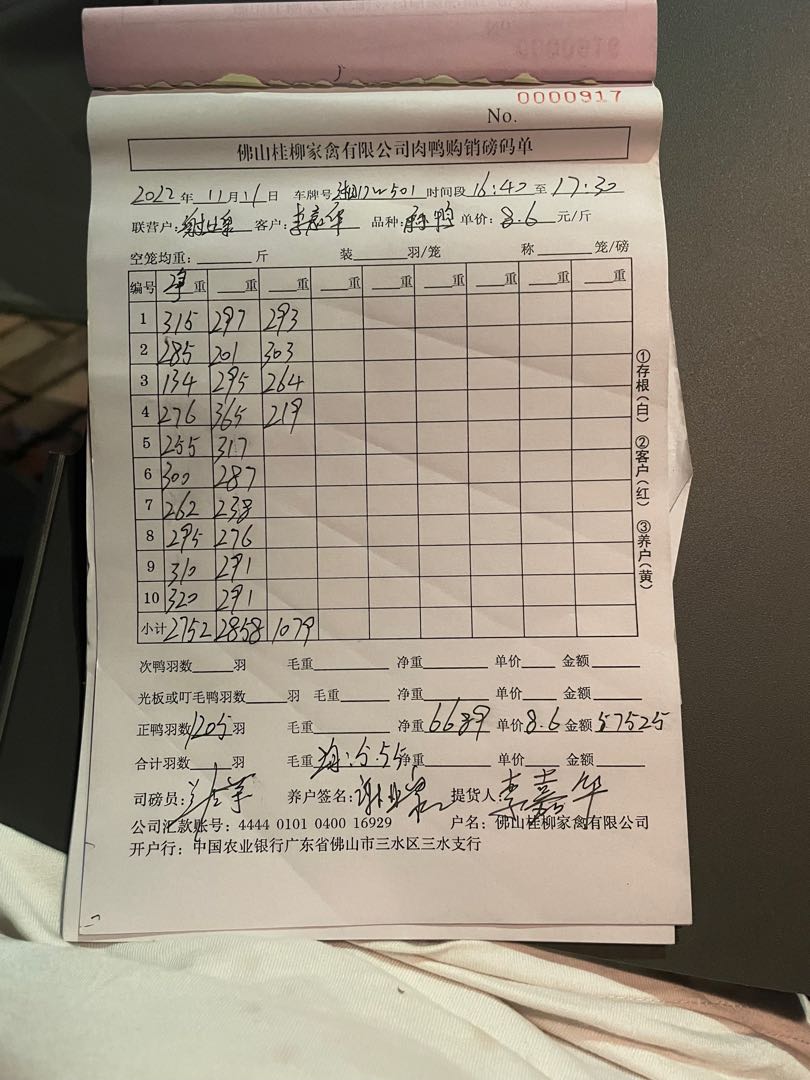 0000917
No.
佛山桂柳家禽有限公司肉鸭购销磅码单
2022年11月16日 车牌号 501 时间段16:40至17:30
联营户: 客户:李嘉华 品种:麻鸭 单价:8.6元/斤
空笼均重:____斤 装____羽/笼 称____笼/磅
编号 净重 __重 __重 __重 __重 __重 __重 __重 __重
1 315 297 293
2 285 201 303
3 134 295 264
4 276 365 219
5 255 317
6 300 287
7 262 238
8 295 276
9 310 291
10 320 291
小计 2752 2858 1079
①存根(白) ②客户(红) ③养户(黄)
次鸭羽数____羽 毛重____ 净重____ 单价____ 金额____
光板或叮毛鸭羽数____羽 毛重____ 净重____ 单价____ 金额____
正鸭羽数1205羽 毛重____ 净重6689 单价8.6 金额57525
合计羽数____羽 毛重 5.55 净重____ 单价____ 金额____
司磅员: 养户签名: 提货人:李嘉华
公司汇款账号:4444 0101 0400 16929 户名:佛山桂柳家禽有限公司
开户行:中国农业银行广东省佛山市三水区三水支行